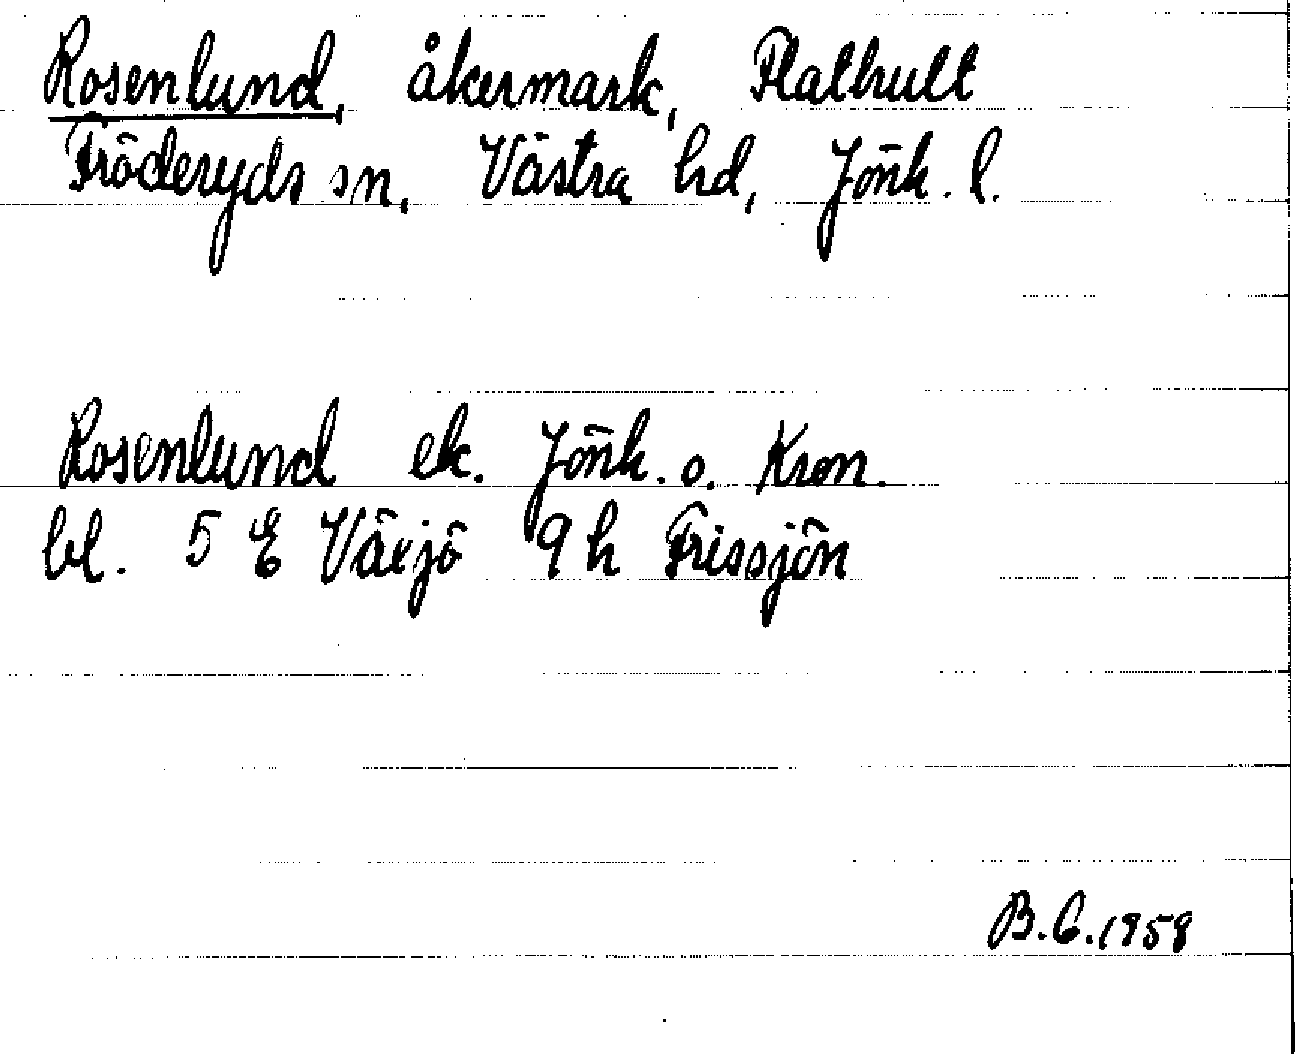 Rosenlund, åkermark, Flathult
Fröderyds sn, Västra hd, Jönk. l.
Rosenlund ek. Jönk. o. Kron.
bl. 5 E Växjö 9 h Frissjön
B.C. 1958